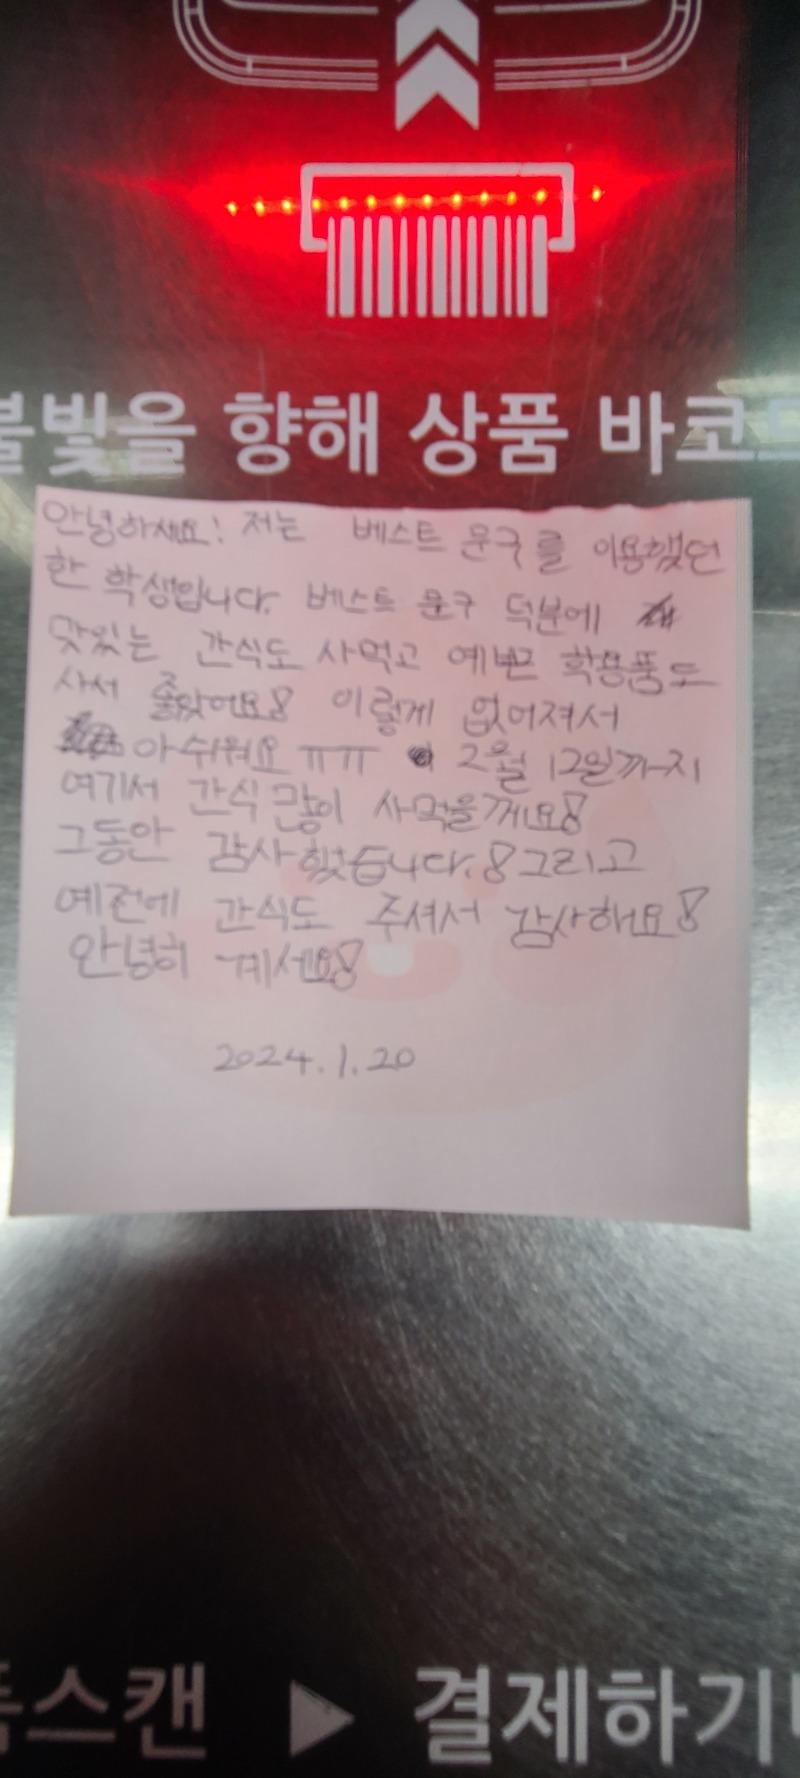 불빛을 향해 상품 바코드
안녕하세요! 저는 베스트 문구를 이용했던
한 학생입니다. 베스트 문구 덕분에
맛있는 간식도 사먹고 예쁜 학용품도
사서 좋았어요! 이렇게 없어져서
아쉬워요 ㅠㅠ 2월 12일까지
여기서 간식 많이 사먹을께요!
그동안 감사했습니다.! 그리고
예전에 간식도 주셔서 감사해요!
안녕히 계세요!
2024.1.20
스캔 ▶ 결제하기